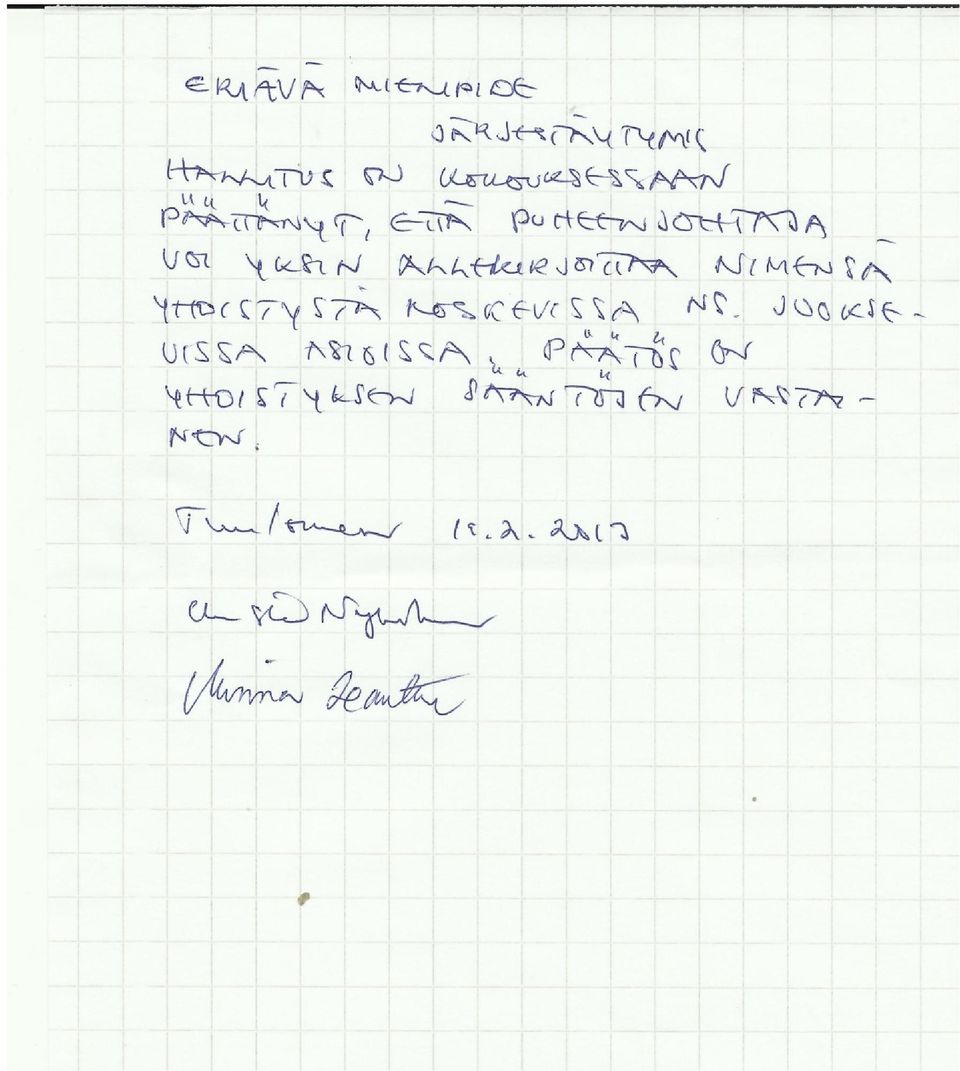 ERIÄVÄ MIELIPIDE
JÄRJESTÄYTYMIS
HALLITUS ON KOKOUKSESSAAN
PÄÄTTÄNYT, ETTÄ PUHEENJOHTAJA
VOI YKSIN ALLEKIRJOITTAA NIMENSÄ
YHDISTYSTÄ KOSKEVISSA NS. JUOKSE-
VISSA ASIOISSA. PÄÄTÖS ON
YHDISTYKSEN SÄÄNTÖJEN VASTAI-
NEN.
2013
Minna